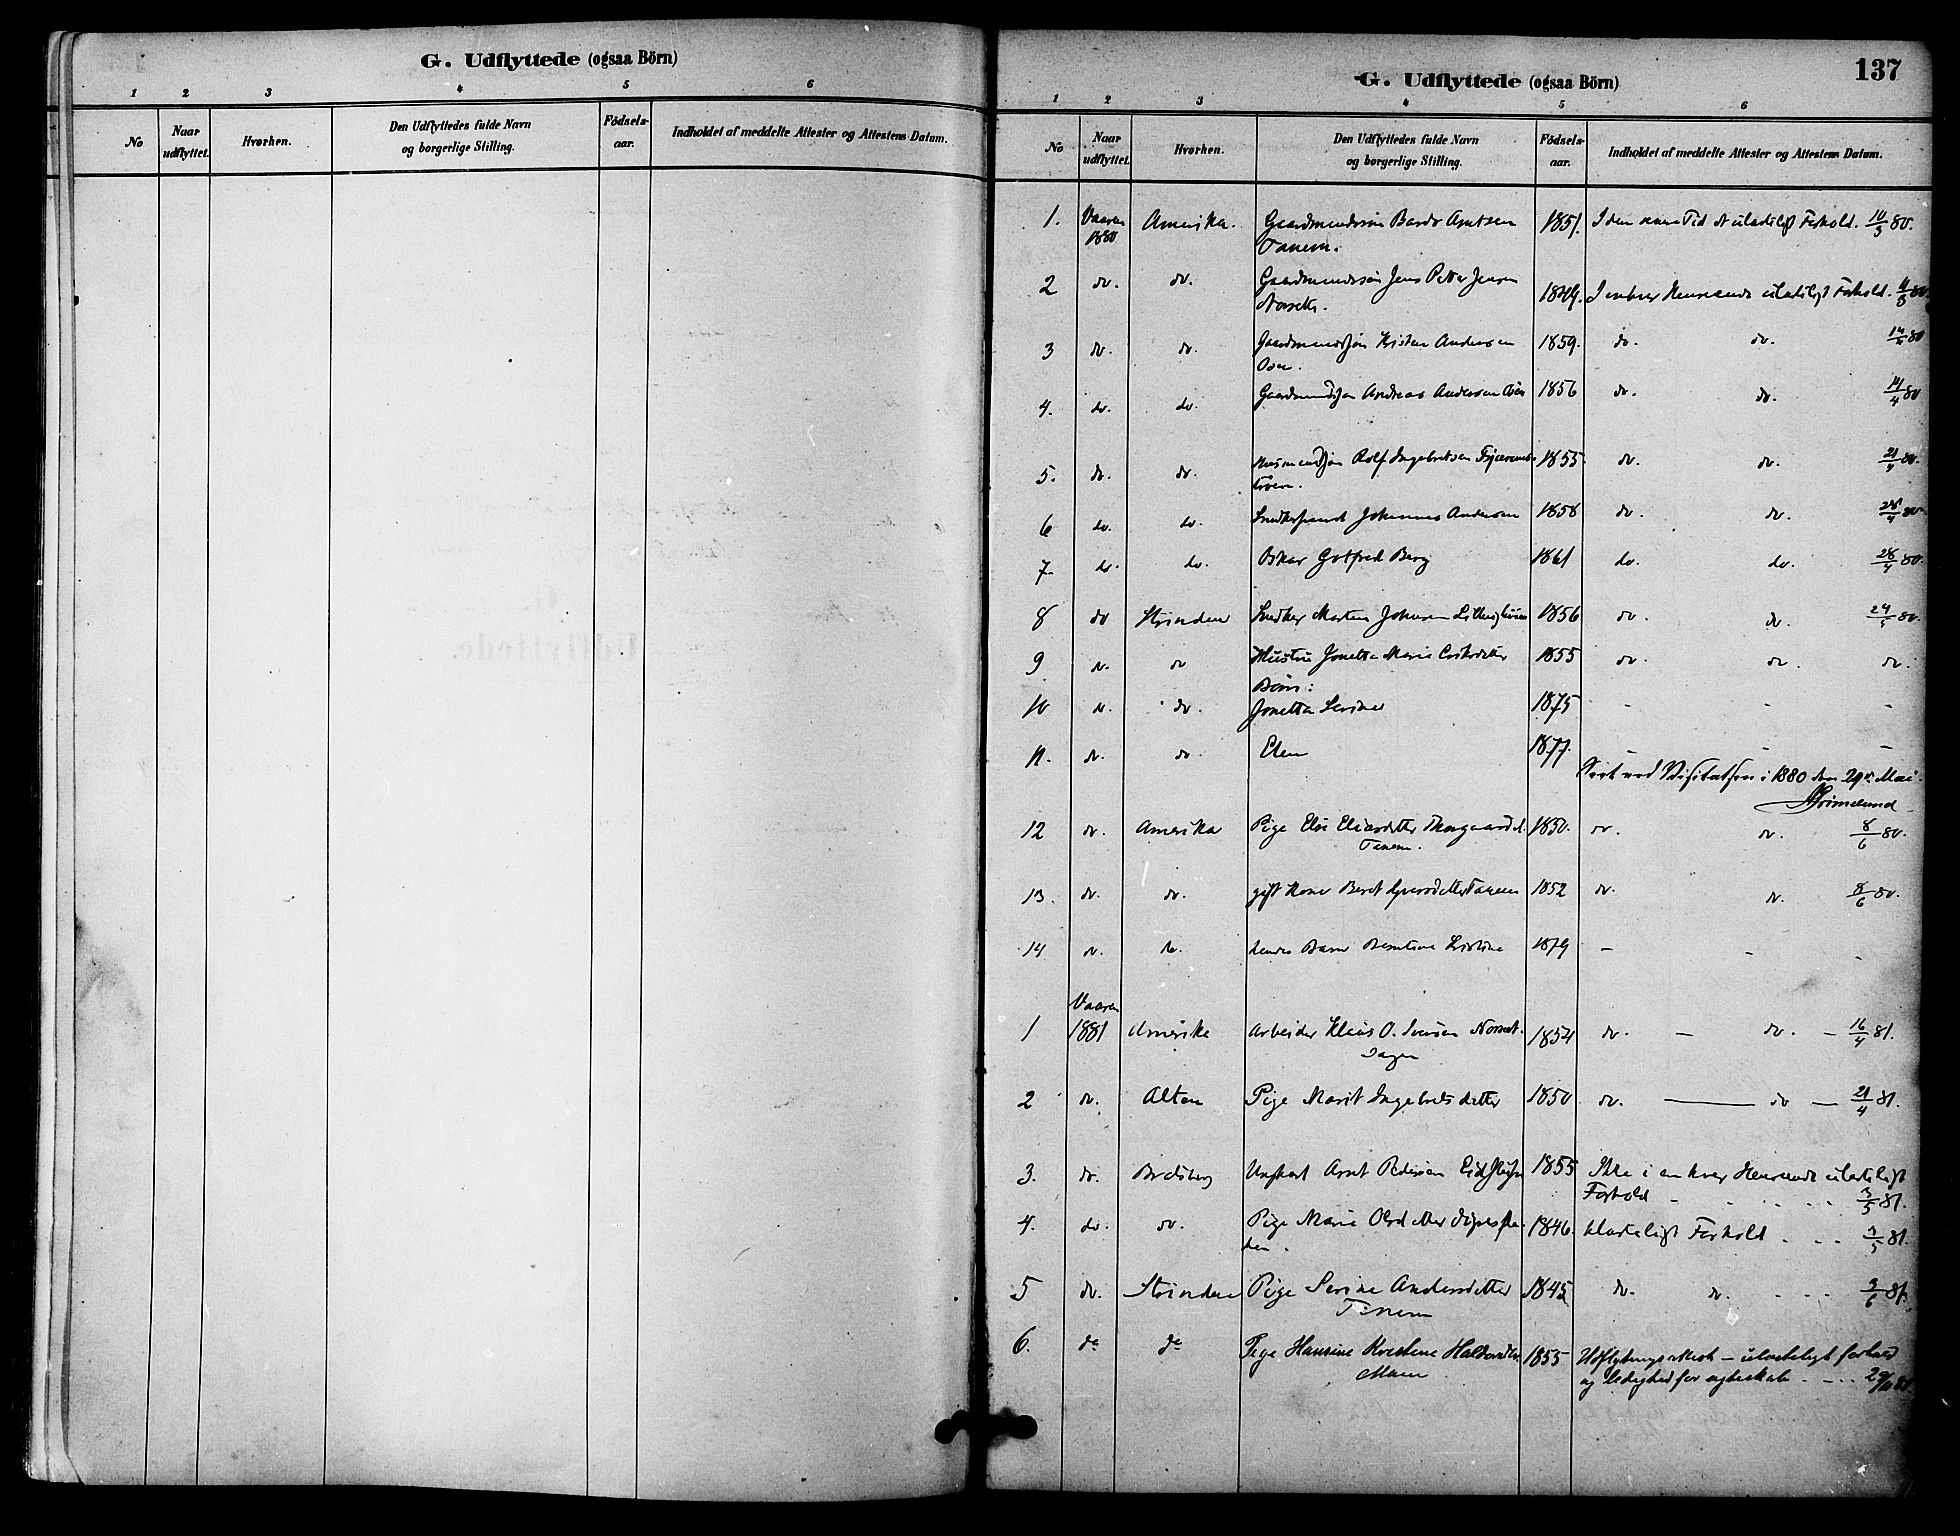 G. Udflyttede (ogsaa Börn)
1 2 3 4 5 6
No
Naar udflyttet.
Hvorhen.
Den Udflyttedes fulde Navn og borgerlige Stilling.
Födsels-aar.
Indholdet af meddelte Attester og Attestens Datum.
137
G. Udflyttede (ogsaa Börn)
1 2 3 4 5 6
No
Naar udflyttet.
Hvorhen.
Den Udflyttedes fulde Navn og borgerlige Stilling.
Födsels-aar.
Indholdet af meddelte Attester og Attestens Datum.
1. Vaaren 1880 Amerika. Gaardmandssøn Bardo Arntsen Tanem. 1851. I den senere Tid et ulasteligt Forhold. 10/3 80.
2 do. do. Gaardmandssøn Jens Petter Jensen 1849. I enhver Henseende ulasteligt Forhold. 80.
3 do. do. Gaardmandssøn Kristen Andersen Osen. 1859. do. do. 80
4. do. do. Gaardmandssøn Andreas Andersen 1856 do. do. 14/4 80
5. do. do. Husmandssøn Rolf Ingebretsen 1855. do. do. 21/4 80.
6 do. do. Johannes Andersen 1858 do. do. 28/4 80
7. do. do. Oskar Gotfred Berg 1861 do. do. 28/4 80.
8 do Strinden Snedker Morten Johnsen 1856 do. do. 80.
9 do. do Hustru Jonetta Marie 1855 do. do. do.
Børn:
10 do. do. Jonetta Serine 1875 - - -
11. do. do. Elen 1877. - -
Seet ved Visitatsen i 1880 den 29de Mai.
Grimelund
12 do. Amerika Pige Elen 1850. do. do. 8/6 80.
Tanem.
13. do. do. gift Kone Beret Tanem 1852 do. do. 8/6 80.
14 do. do. hendes Barn Berntine Kristine 1879 - - -
1 Vaaren 1881 Amerika Arbeider Klaus O. 1854 do. - do. - 16/4 81.
2 do. Alten Pige Marit Ingebrigtsdatter 1850. do. - do - 21/4 81.
3. do. Bratsberg Ungkarl Arnt Pedersen 1855 Ikke i enhver Henseende ulasteligt Forhold 3/5 81.
4. do. do. Pige Marie Olsdatter 1846. Ulasteligt Forhold . . . 81.
5 do. Strinden Pige Serine Andersdatter 1845 do. do. . . . 81.
Tanem
6. do do Pige Hansine Kristine 1855 Udflytningsattest - ulasteligt forhold
Moen og ledighed for ægteskab . - . . 29/11 81.